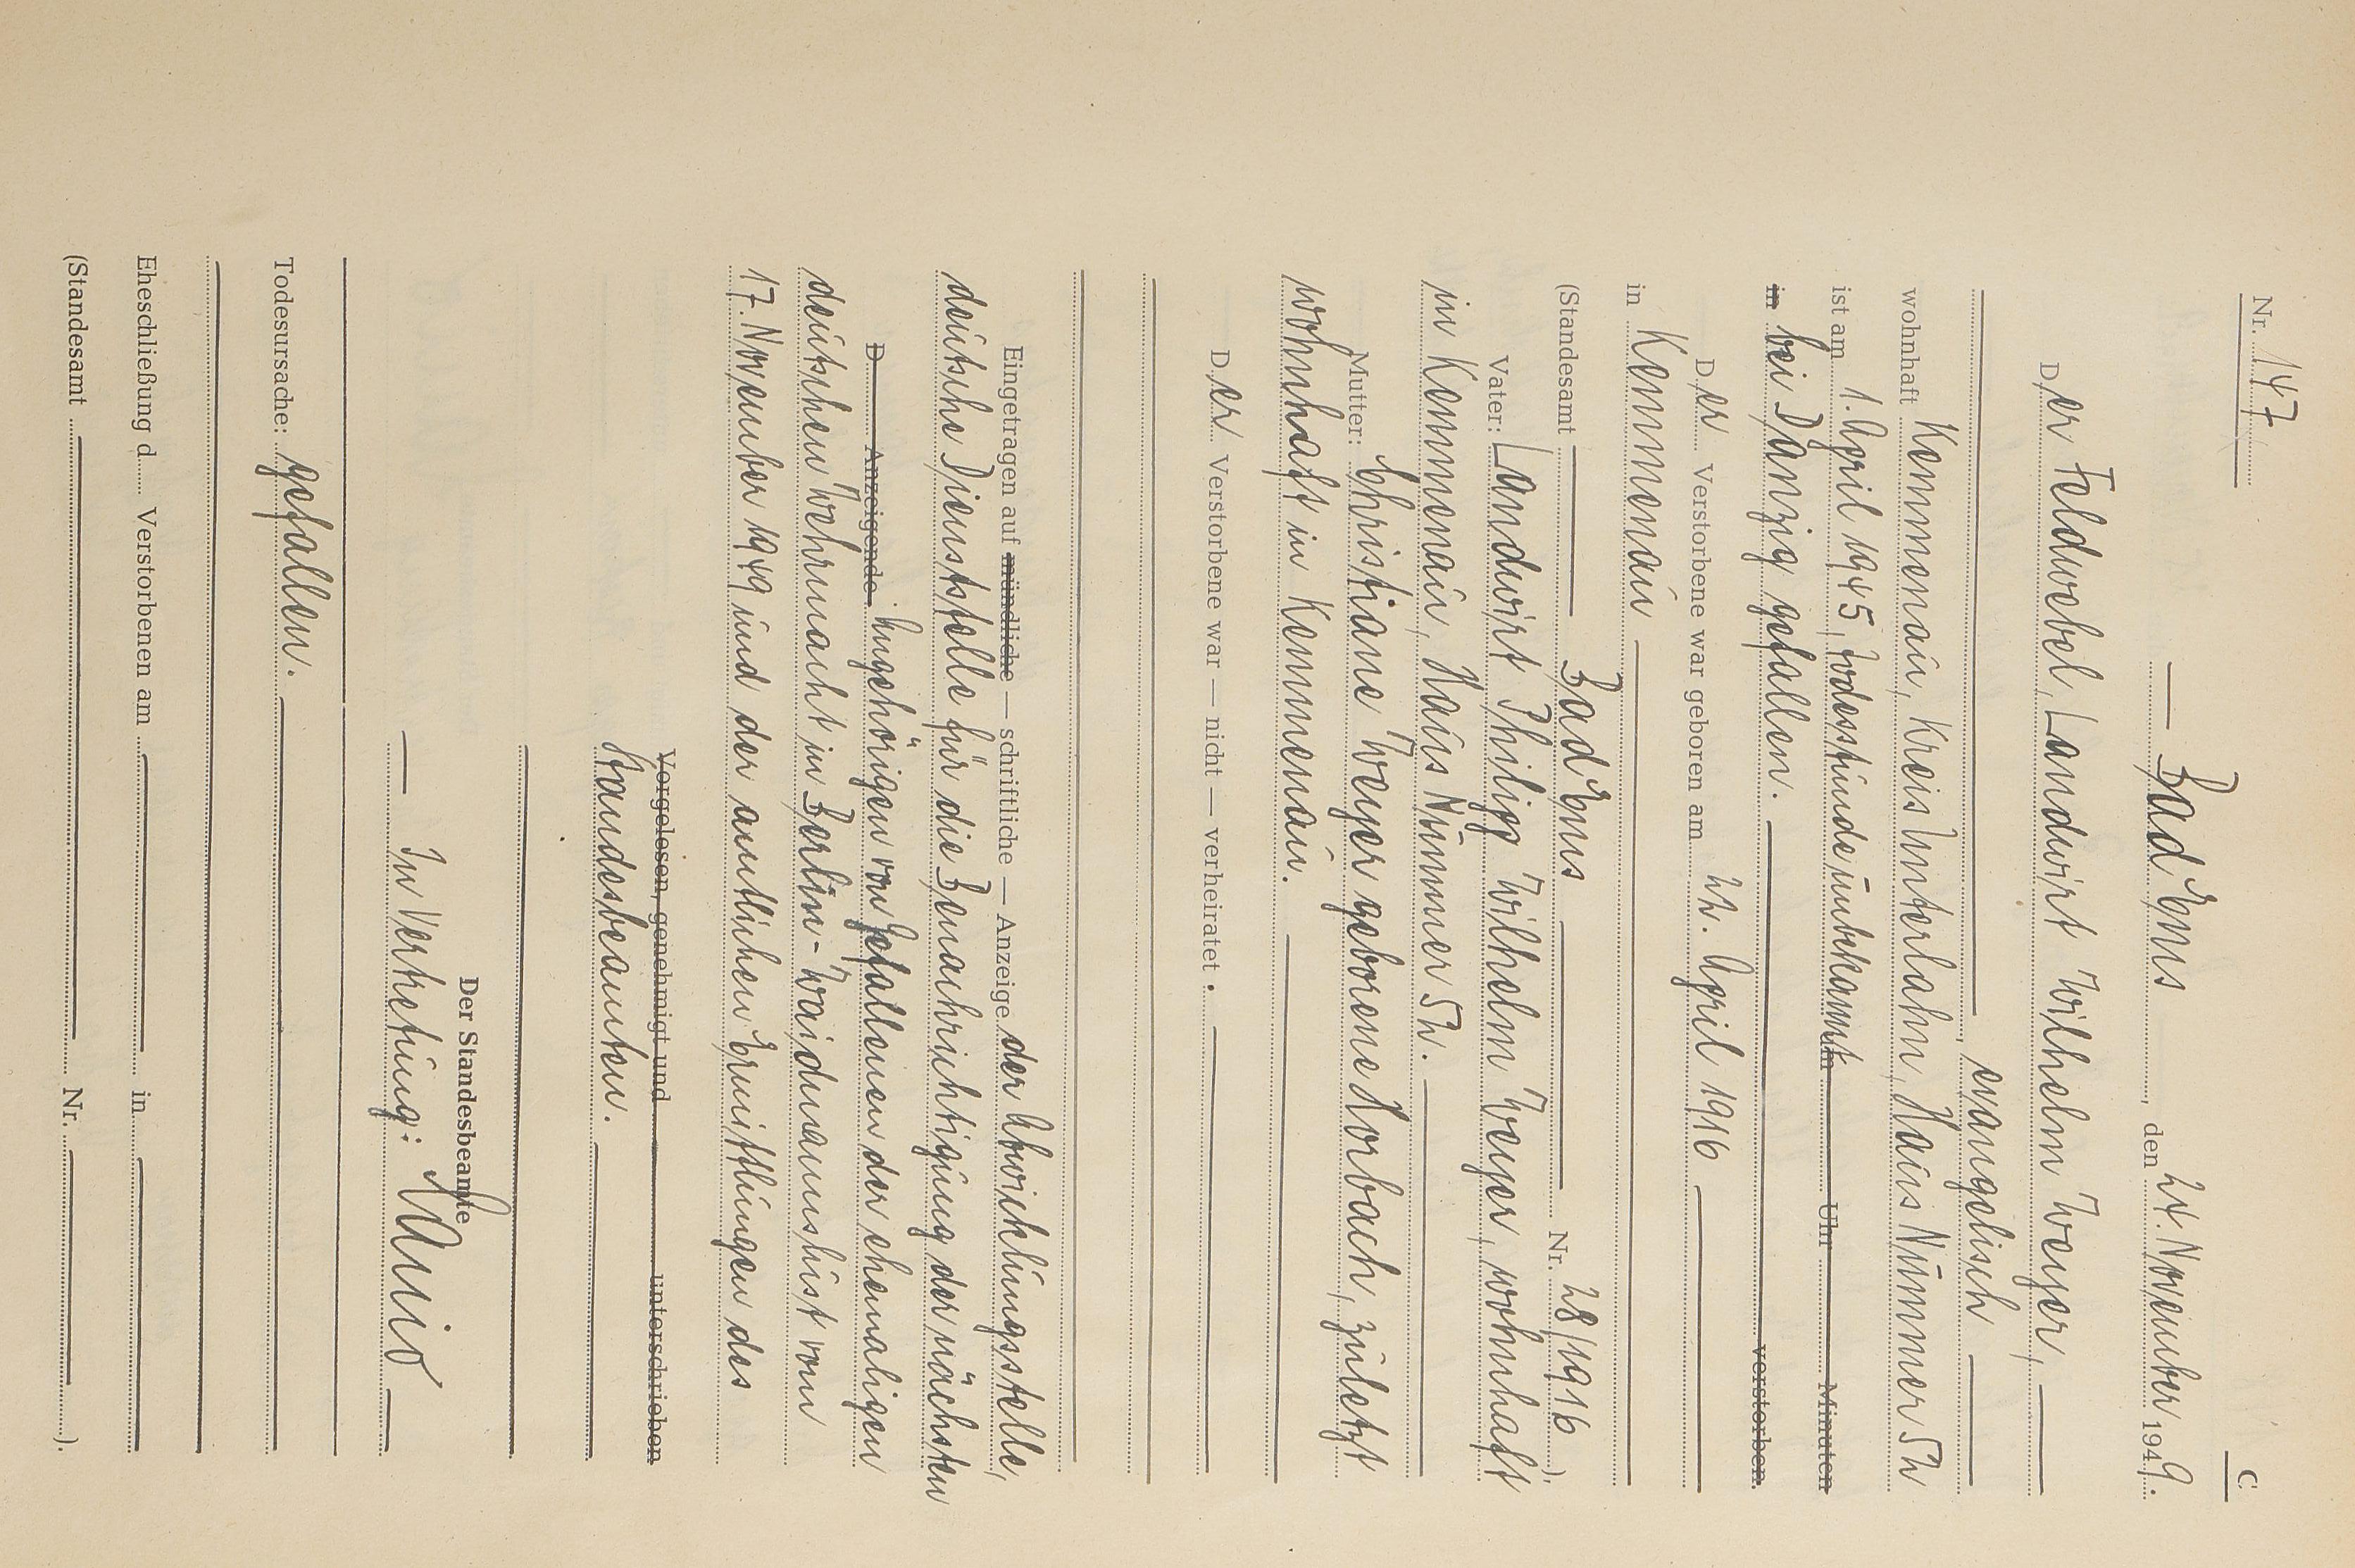 C
Nr. 147
— Bad Ems , den 24. November 1949.
Der Feldwebel, Landwirt Wilhelm Weyer,
, evangelisch
wohnhaft Kemmenau, Kreis Unterlahn, Haus Nummer 52
ist am 1. April 1945, Todesstunde unbekannt um Uhr Minuten
in bei Danzig gefallen. verstorben.
Der Verstorbene war geboren am 22. April 1916
in Kemmenau
(Standesamt Bad Ems Nr. 28/1916 ),
Vater: Landwirt Philipp Wilhelm Weyer, wohnhaft
in Kemmenau, Haus Nummer 52.
Mutter: Christiane Weyer geborene Horbach, zuletzt
wohnhaft in Kemmenau.
Der Verstorbene war — nicht — verheiratet .
Eingetragen auf mündliche — schriftliche — Anzeige der Abwicklungsstelle,
deutsche Dienststelle für die Benachrichtigung der nächsten
D Anzeigende Angehörigen von Gefallenen der ehemaligen
deutschen Wehrmacht in Berlin-Waidmannslust vom
17. November 1949 und der amtlichen Ermittlungen des
Vorgelesen, genehmigt und unterschrieben
Standesbeamten.
Der Standesbeamte
— In Vertretung:
Todesursache: gefallen.
Eheschließung d Verstorbenen am in
(Standesamt Nr. ).